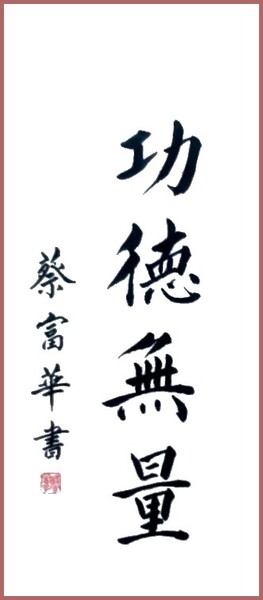 功德無量
蔡富華書